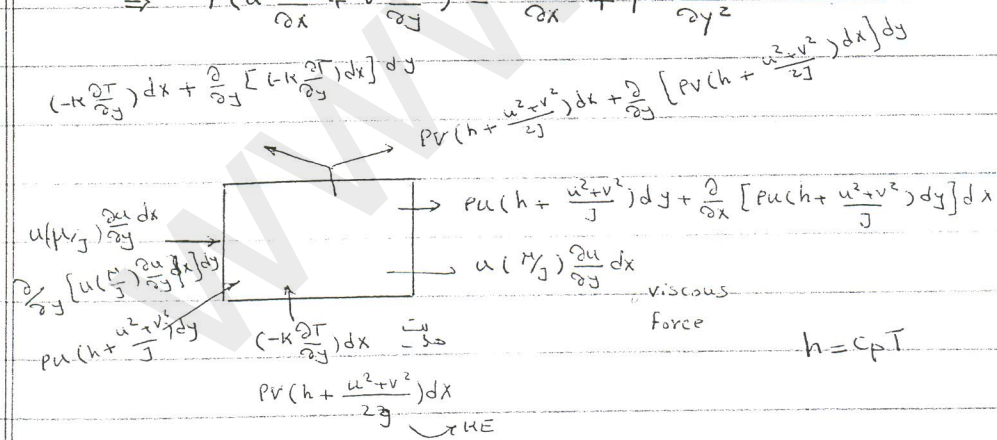 ⇒ ρ(u ∂u/∂x + v ∂u/∂y) = ∂/∂x + μ ∂/∂y²
(-k ∂T/∂y) dx + ∂/∂y [(-k ∂T/∂y) dx] dy
ρv(h + (u²+v²)/2J) dx + ∂/∂y [ρv(h + (u²+v²)/2J) dx] dy
ρu(h + (u²+v²)/J) dy + ∂/∂x [ρu(h + (u²+v²)/J) dy] dx
u(μ/J) ∂u/∂y dx
∂/∂y [u(μ/J) ∂u/∂y dx] dy
u(μ/J) ∂u/∂y dx
viscous
force
ρu(h + (u²+v²)/J) dy
(-k ∂T/∂y) dx
h = CpT
ρv(h + (u²+v²)/2g) dx
KE